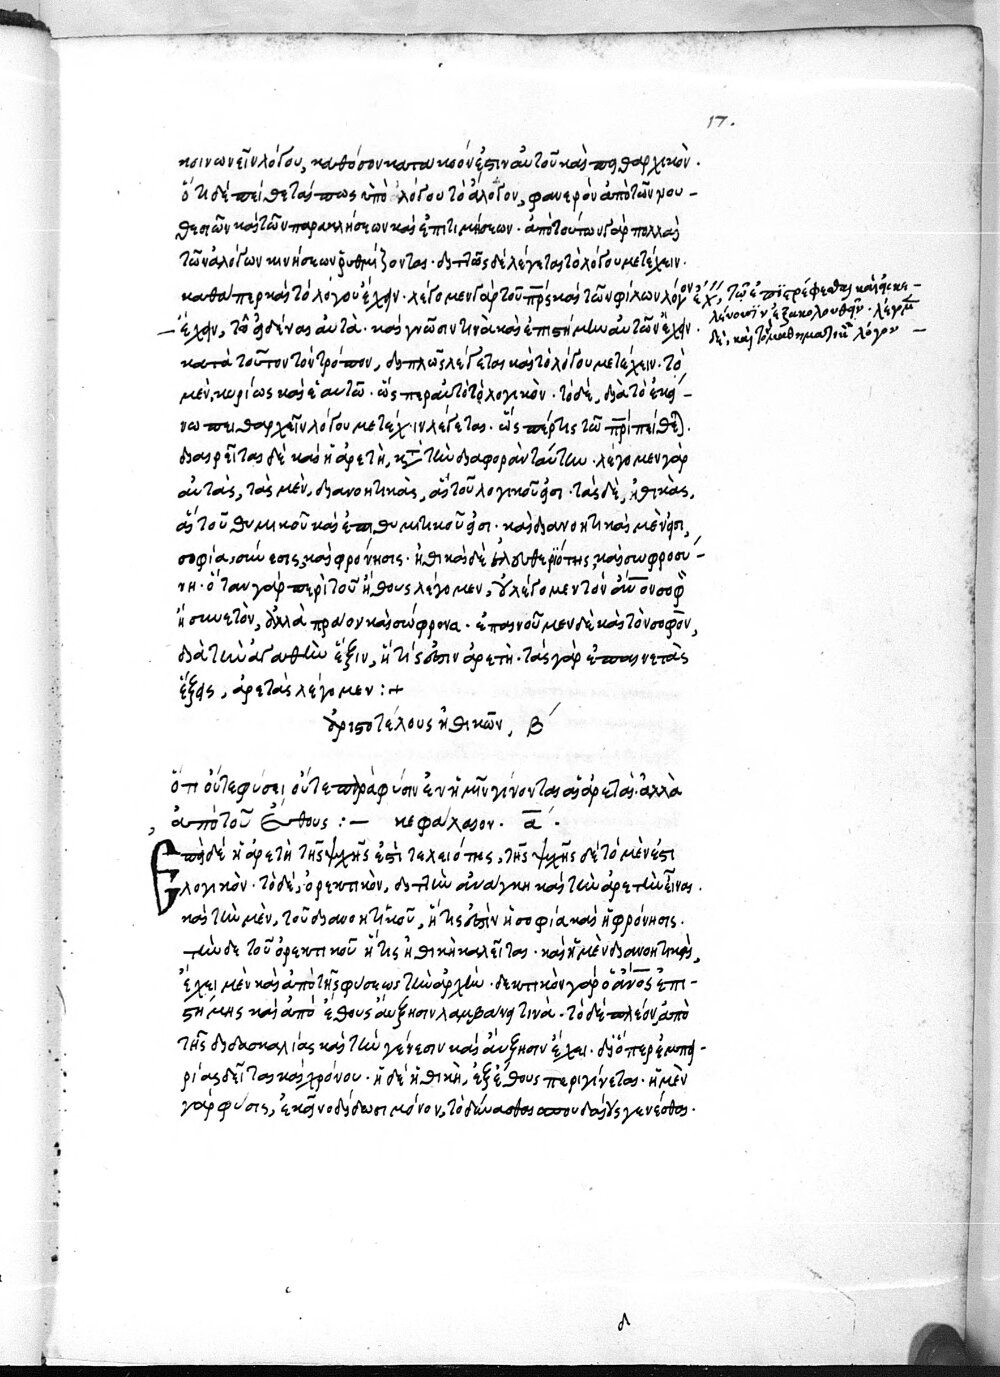 17.
κοινωνεῖν λόγου, καθόσον κατακούον ἐστὶν αὐτοῦ καὶ πειθαρχικόν.
ὅτι δὲ πείθεταί πως ὑπὸ λόγου τὸ ἄλογον, φανερὸν ἀπὸ τῶν νου-
θεσιῶν καὶ τῶν παρακλήσεων καὶ ἐπιτιμήσεων. ἀπὸ τούτων γὰρ πολλαὶ
τῶν ἀλόγων κινήσεων ῥυθμίζονται. διττῶς δὲ λέγεται τὸ λόγου μετέχειν.
καθάπερ καὶ τὸ λόγον ἔχειν. λέγομεν γὰρ τοῦ πρς καὶ τῶν φίλων λόγον ἔχειν, τῷ ἐπιστρέφεσθαι καὶ οἷς κε-
λεύουσιν ἐξακολουθεῖν. λέγομεν
δὲ, καὶ τῶν μαθηματικῶν λόγον
ἔχειν, τὸ εἰδέναι αὐτὰ. καὶ γνῶσιν τινὰ καὶ ἐπιστήμην αὐτῶν ἔχειν.
κατὰ τοῦτον τὸν τρόπον, διπλῶς λέγεται καὶ τὸ λόγου μετέχειν. τὸ
μὲν, κυρίως καὶ ἐν αὑτῷ. ὥσπερ αὐτὸ τὸ λογικὸν. τὸ δὲ, διὰ τὸ ἐκεί-
νῳ πειθαρχεῖν λόγου μετέχειν λέγεται. ὥσπερ τις τῷ πρι πείθεται.
διαιρεῖται δὲ καὶ ἡ ἀρετὴ, κατὰ τὴν διαφορὰν ταύτην. λέγομεν γὰρ
αὐτὰς, τὰς μὲν, διανοητικὰς, αἳ τοῦ λογικοῦ εἰσι. τὰς δὲ, ἠθικὰς,
αἳ τοῦ θυμικοῦ καὶ ἐπιθυμητικοῦ εἰσι. καὶ διανοητικαὶ μὲν εἰσι,
σοφία, σύνεσις, καὶ φρόνησις. ἠθικαὶ δὲ ἐλευθεριότης, καὶ σωφροσύ-
νη. ὅταν γὰρ περὶ τοῦ ἤθους λέγομεν, οὐ λέγομεν τὸν ανον σοφὸν
ἢ συνετὸν, ἀλλὰ πρᾶον καὶ σώφρονα. ἐπαινοῦμεν δὲ καὶ τὸν σοφὸν,
διὰ τὴν ἀγαθὴν ἕξιν, ἥτις ἐστὶν ἀρετὴ. τὰς γὰρ ἐπαινετὰς
ἕξεις, ἀρετὰς λέγομεν :+
ἀριστοτέλους ἠθικῶν, β´
ὅτι οὔτε φύσει οὔτε παρὰ φύσιν ἐν ἡμῖν γίνονται αἱ ἀρεταὶ. ἀλλὰ
ἀπὸ τοῦ ἔθους :— κεφάλαιον. α´.
Ἐπεὶ δὲ ἡ ἀρετὴ τῆς ψχῆς ἐστὶ τελειότης, τῆς ψχῆς δὲ τὸ μὲν ἐστι
λογικὸν. τὸ δὲ, ὀρεκτικὸν, διττὴν ἀνάγκη καὶ τὴν ἀρετὴν εἶναι.
καὶ τὴν μὲν, τοῦ διανοητικοῦ, ἥτις ἐστὶν ἡ σοφία καὶ ἡ φρόνησις.
τὴν δὲ τοῦ ὀρεκτικοῦ ἥτις ἠθικὴ καλεῖται. καὶ ἡ μὲν διανοητικὴ,
ἔχει μὲν καὶ ἀπὸ τῆς φύσεως τὴν ἀρχὴν. δεκτικὸν γὰρ ὁ ανος ἐπι-
στήμης καὶ ἀπὸ ἔθους αὔξησιν λαμβάνει τινὰ. τὸ δὲ πλέον ἀπὸ
τῆς διδασκαλίας καὶ τὴν γένεσιν καὶ αὔξησιν ἔχει. διόπερ ἐμπει-
ρίας δεῖται καὶ χρόνου. ἡ δὲ ἠθικὴ, ἐξ ἔθους περιγίνεται. ἡ μὲν
γὰρ φύσις, ἐκεῖνο δίδωσι μόνον, τὸ δύνασθαι σπουδαίους γενέσθαι.
δ